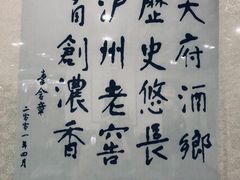 天府酒鄉
歷史悠長
泸州老窖
首創濃香
二零零一年四月